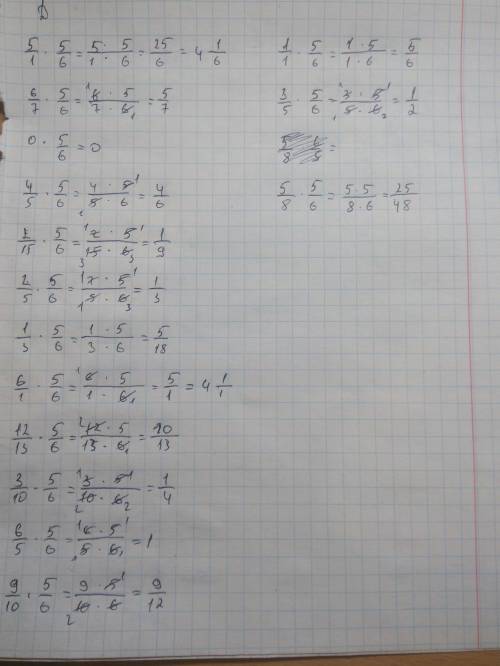 D
5/1 · 5/6 = 5 · 5 / 1 · 6 = 25/6 = 4 1/6
6/7 · 5/6 = 6 · 5 / 7 · 6 = 5/7
0 · 5/6 = 0
4/5 · 5/6 = 4 · 5 / 5 · 6 = 4/6
2/15 · 5/6 = 2 · 5 / 15 · 6 = 1/9
2/5 · 5/6 = 2 · 5 / 5 · 6 = 1/3
1/3 · 5/6 = 1 · 5 / 3 · 6 = 5/18
6/1 · 5/6 = 6 · 5 / 1 · 6 = 5/1 = 4 1/1
12/13 · 5/6 = 12 · 5 / 13 · 6 = 10/13
3/10 · 5/6 = 3 · 5 / 10 · 6 = 1/4
6/5 · 5/6 = 6 · 5 / 5 · 6 = 1
9/10 · 5/6 = 9 · 5 / 10 · 6 = 9/12
1/1 · 5/6 = 1 · 5 / 1 · 6 = 5/6
3/5 · 5/6 = 3 · 5 / 5 · 6 = 1/2
5/8 · 5/6 = 5 · 5 / 8 · 6 = 25/48